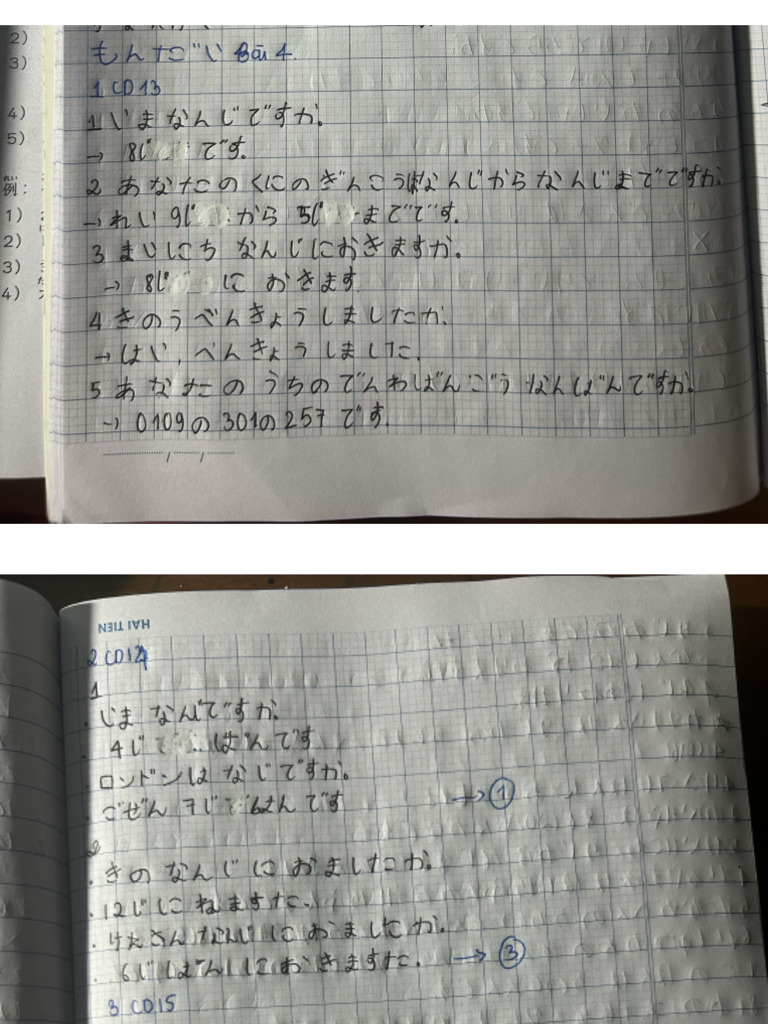 2)
3)
4)
5)
例:
1)
2)
3)
4)
もんだい Bài 4
1 CD13
1 いま なんじですか。
→ 8じ です。
2 あなたのくにのぎんこうはなんじから なんじまでですか。
→ れい 9じ から 5じ までです。
3 まいにち なんじにおきますか。
→ 8じ に おきます
4 きのうべんきょうしましたか。
→ はい、べんきょうしました。
5 あなたの うちのでんわばんごう なんばんですか。
→ 0109の301の257 です
HAI TIEN
2 CD14
1
. いま なんじですか。
. 4じ はんです
. ロンドンは なじですか。
. ごぜん 7じ はんです → ①
2
. きの なんじに おましたか。
. 12じに ねますた。
. けさ なんじに おましたか。
. 6じはんにおきますた. → ③
3 CD15